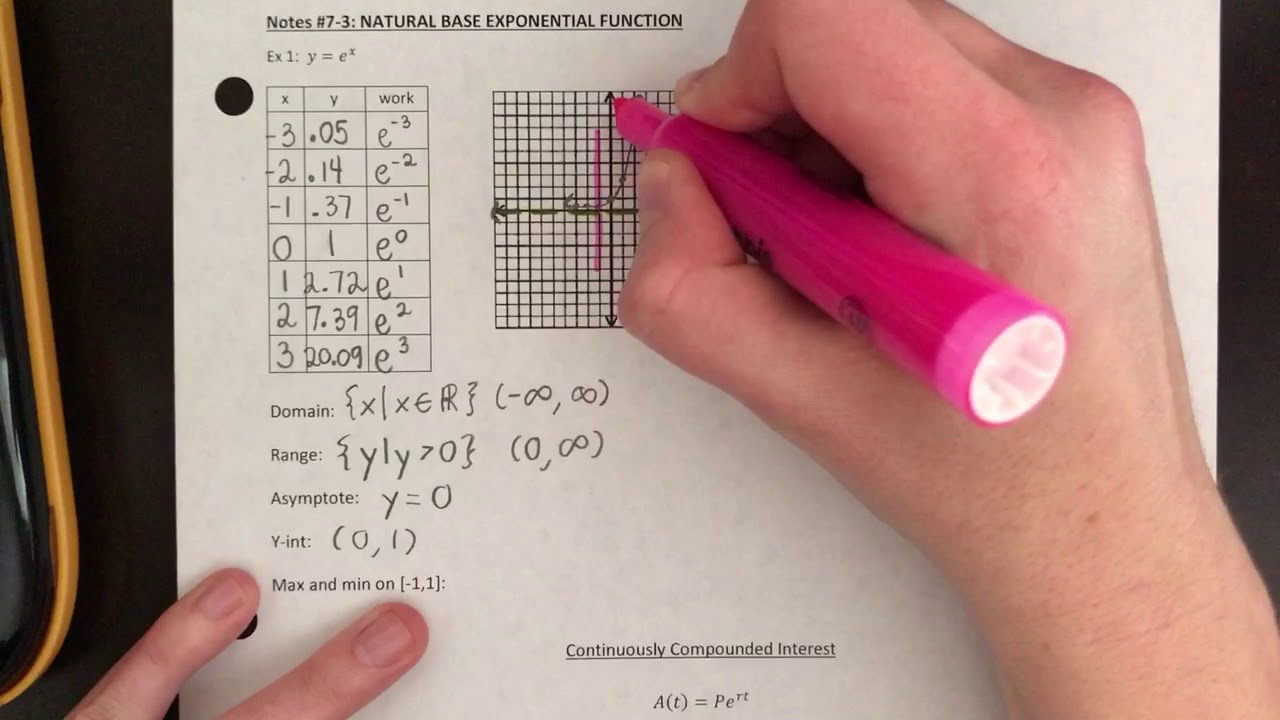 Notes #7-3: NATURAL BASE EXPONENTIAL FUNCTION
Ex 1: y = eˣ
x y work
-3 .05 e⁻³
-2 .14 e⁻²
-1 .37 e⁻¹
0 1 e⁰
1 2.72 e¹
2 7.39 e²
3 20.09 e³
Domain: {x|x∈ℝ} (-∞, ∞)
Range: {y|y>0} (0,∞)
Asymptote: y = 0
Y-int: (0,1)
Max and min on [-1,1]:
Continuously Compounded Interest
A(t) = Peʳᵗ